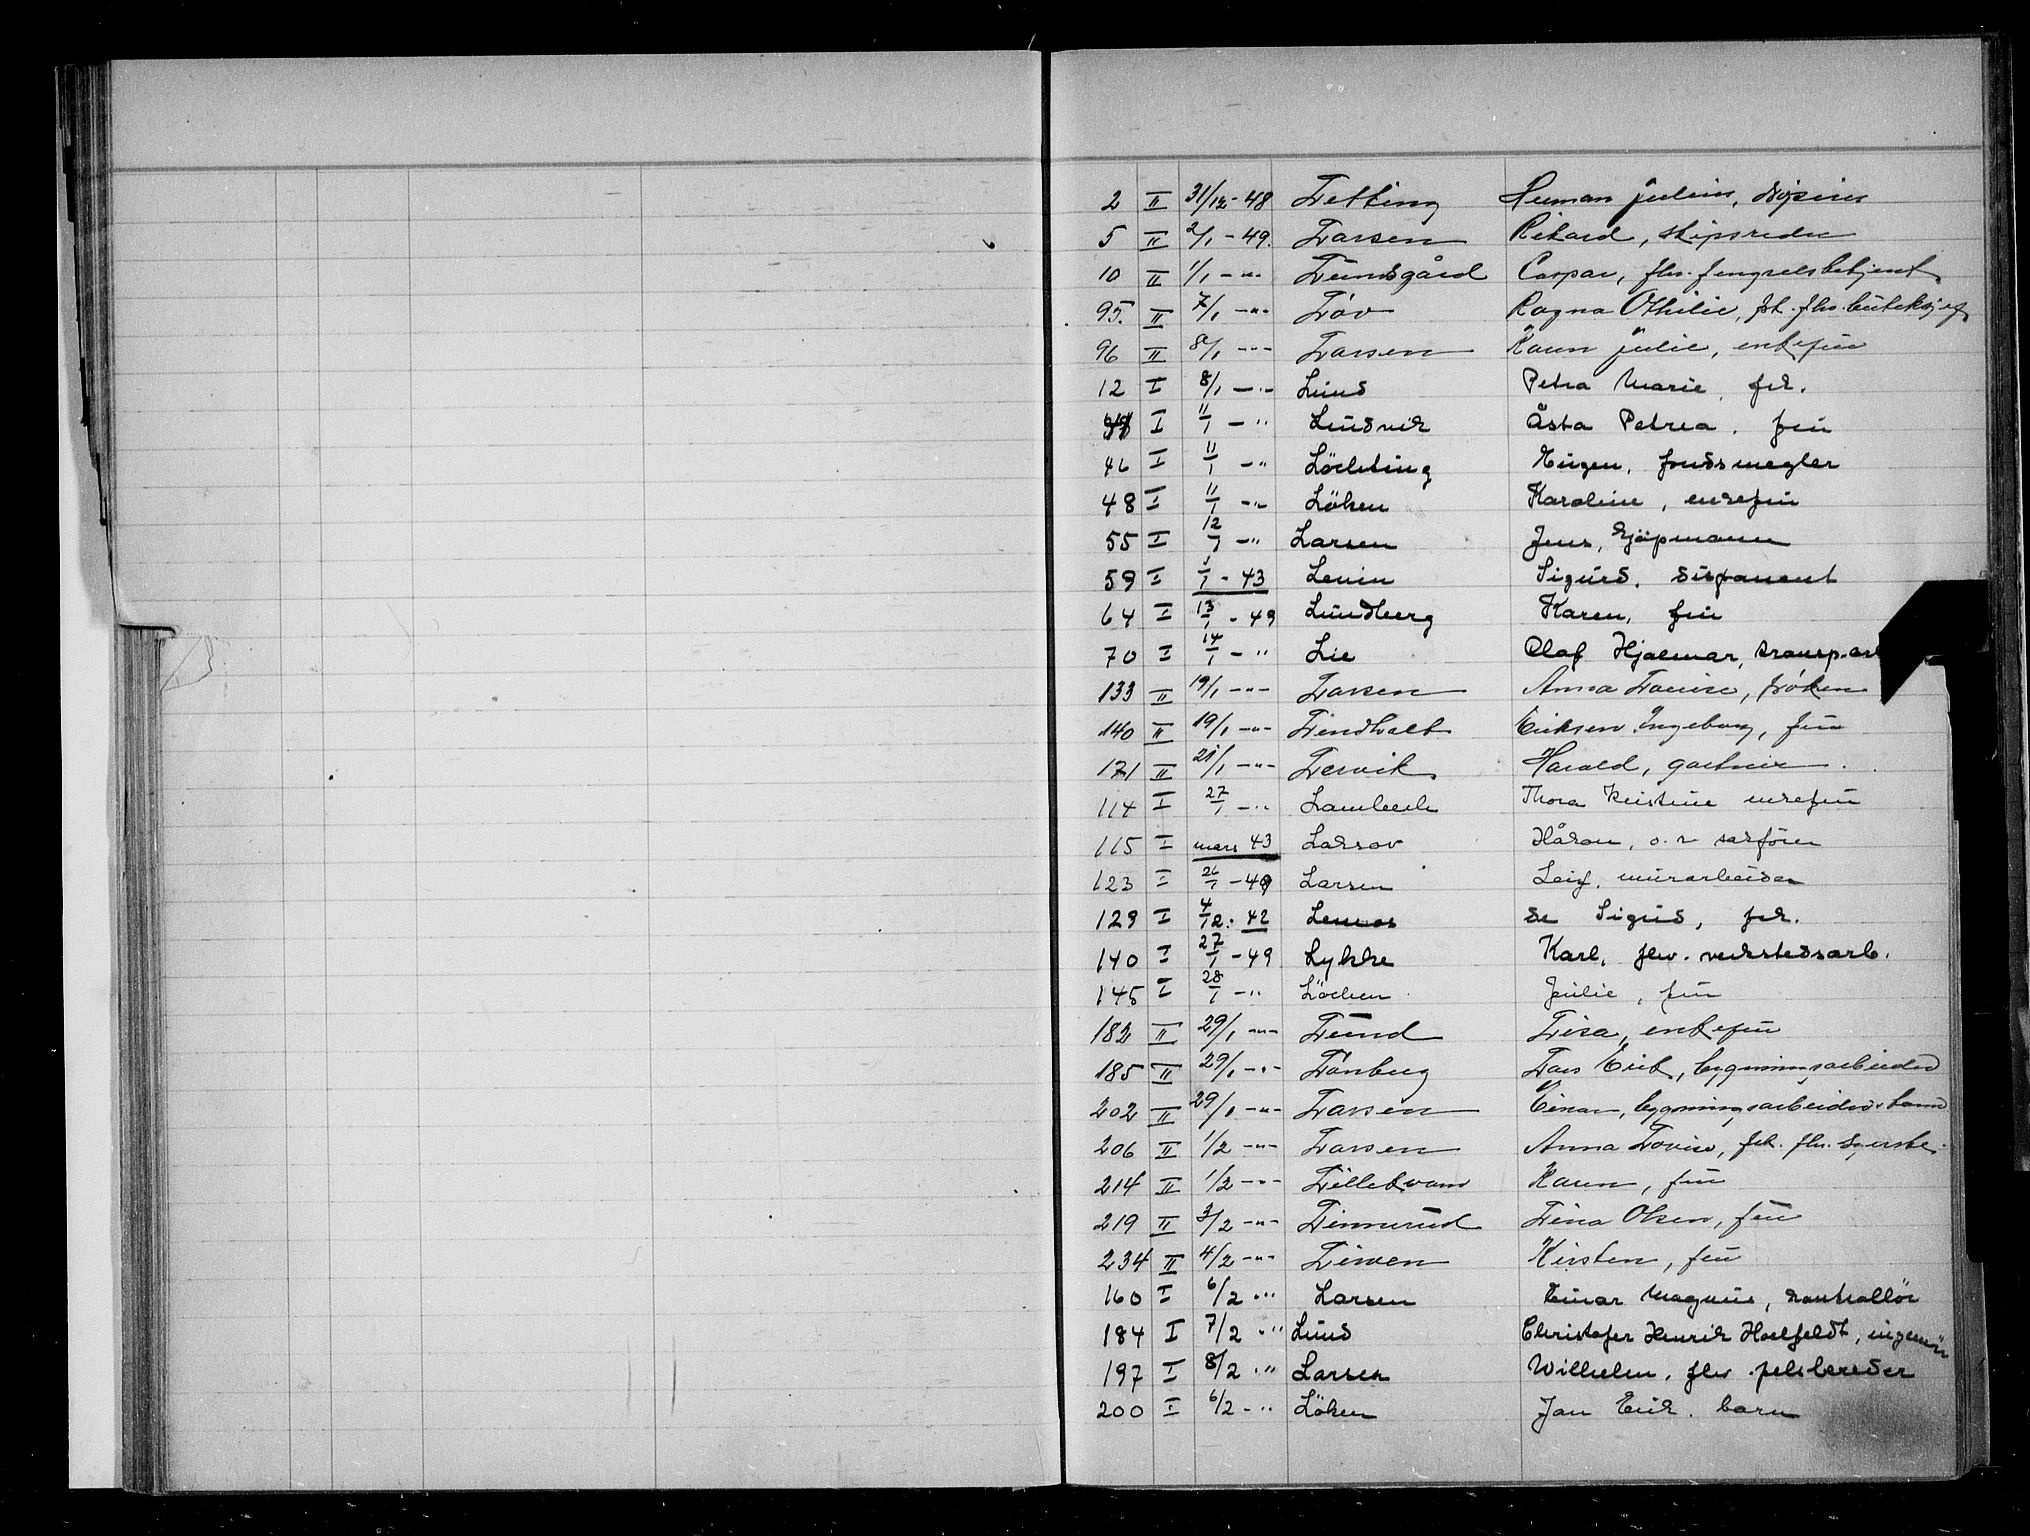 2 II 31/12-48 Letting Herman Julius,
5 II 2/1-49. Larsen Rikard, skipsreder
10 II 1/1 -"- Lundsgård Caspar, fhv. fengselsbetjent
95. II 7/1 -"- Løv Ragna Othilie, frk. fhv.
96 II 8/1 -"- Larsen Karen Julie, enkefru
12 I 8/1 -"- Lund Petra Marie, frk.
I 11/1 -" Ludvik Åsta Petrea, fru
46 I 11/1 -" Löchting Eugen, fondsmegler
48 I 11/1 -"- Löken Karoline, enkefru
55 I 12/1 -" Larsen Jens, kjöpmann
59 I 1/1 - 43 Levin Sigurd, disponent
64 I 13/1 - 49 Lundberg Karen, fru
70 I 14/1 -" Lie Olaf Hjalmar, transp.arb
133 II 19/1 -"- Larsen Anna Louise, frøken
140 II 19/1 -"- Lindholt Eriksen Ingeborg, fru
171 II 21/1 -"- Lervik Harald, gartner.
114 I 27/1 -" Lambech Thora Kristine enkefru
115 I mars 43 Laksov Håkon, o.r sakförer
123 I 26/1 -49 Larsen Leif, murarbeider
129 I 4/12. 42 Lemos de Sigrid, frk.
140 I 27/1 -49 Lykke Karl, fhv. verkstedsarb.
145 I 28/1 -" Löchen Julie, fru
182 II 29/1 -"- Lund Lisa, enkefru
185 II 29/1 -"- Lönberg Lars Erik, bygningsarbeider
202 II 29/1 -"- Larsen Einar, bygningsarbeider
206 II 1/2 -"- Larsen Anna Lovise, frk. fhv. syerske.
214 II 1/2 -"- Lilletvann Karen, fru
219 II 3/2 -"- Linnerud Lina Olsen, fru
234 II 4/2 -"- Kirsten, fru
160 I 6/2 "" Larsen Einar Magnus, kontrollör
184 I 7/2 "" Lund Christofer Henrik Holfeldt, ingeniör
197 I 8/2 "" Larsen Wilhelm, fhv. pelsbereder
200 I 6/2 -" Löken Jan Erik, barn